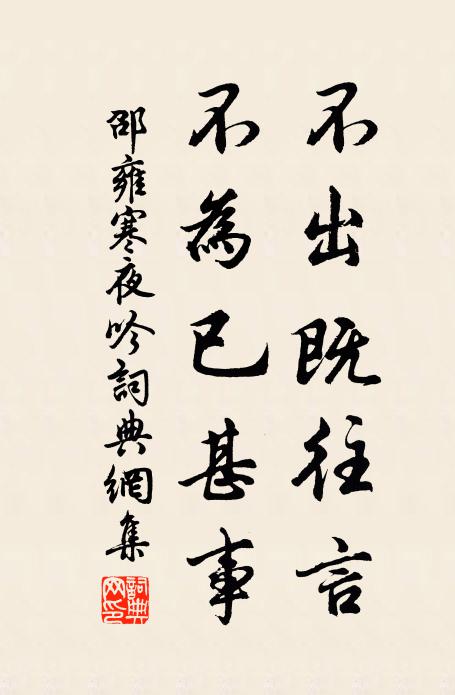 不出既往言
不為已甚事
邵雍寒夜吟詞典網集
詞典網印